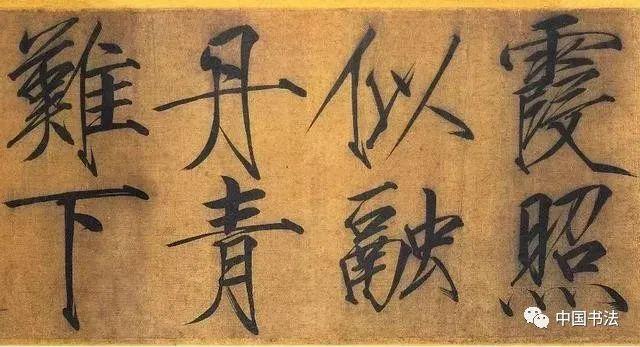 霞照
似融
丹青
難下
中国书法